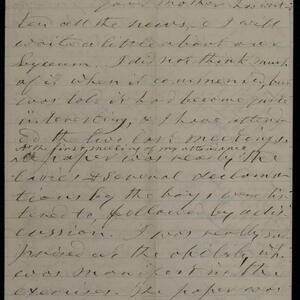 your mother has writ-
ten all the news, & I will
write a little about our
Lyceum. I did not think much
of it when it commenced, but
was told it had become quite
interesting, & I have atten-
ded the two last meetings.
At the first meeting of my attendance
a paper was read by the
ladies & several declama-
tions by the boys were lis-
tened to, followed by a dis-
cussion. I was really sur-
prised at the ability which
was manifest in the
exercises. The paper was